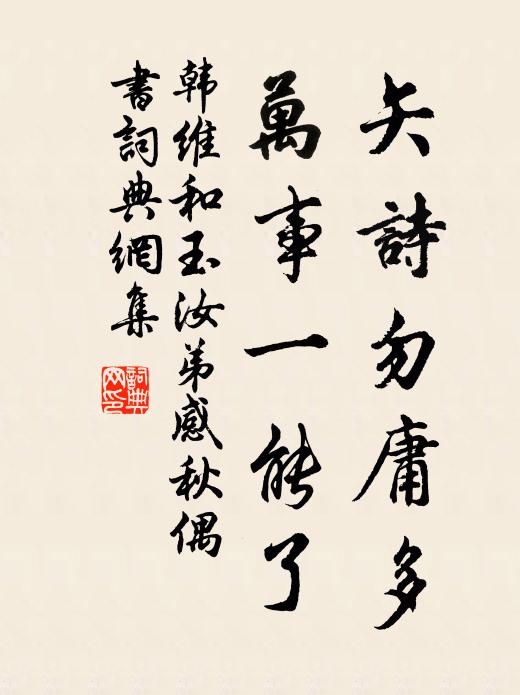 矢詩勿庸多
萬事一能了
韩維和玉汝弟感秋偶
書詞典網集
詞典
网印